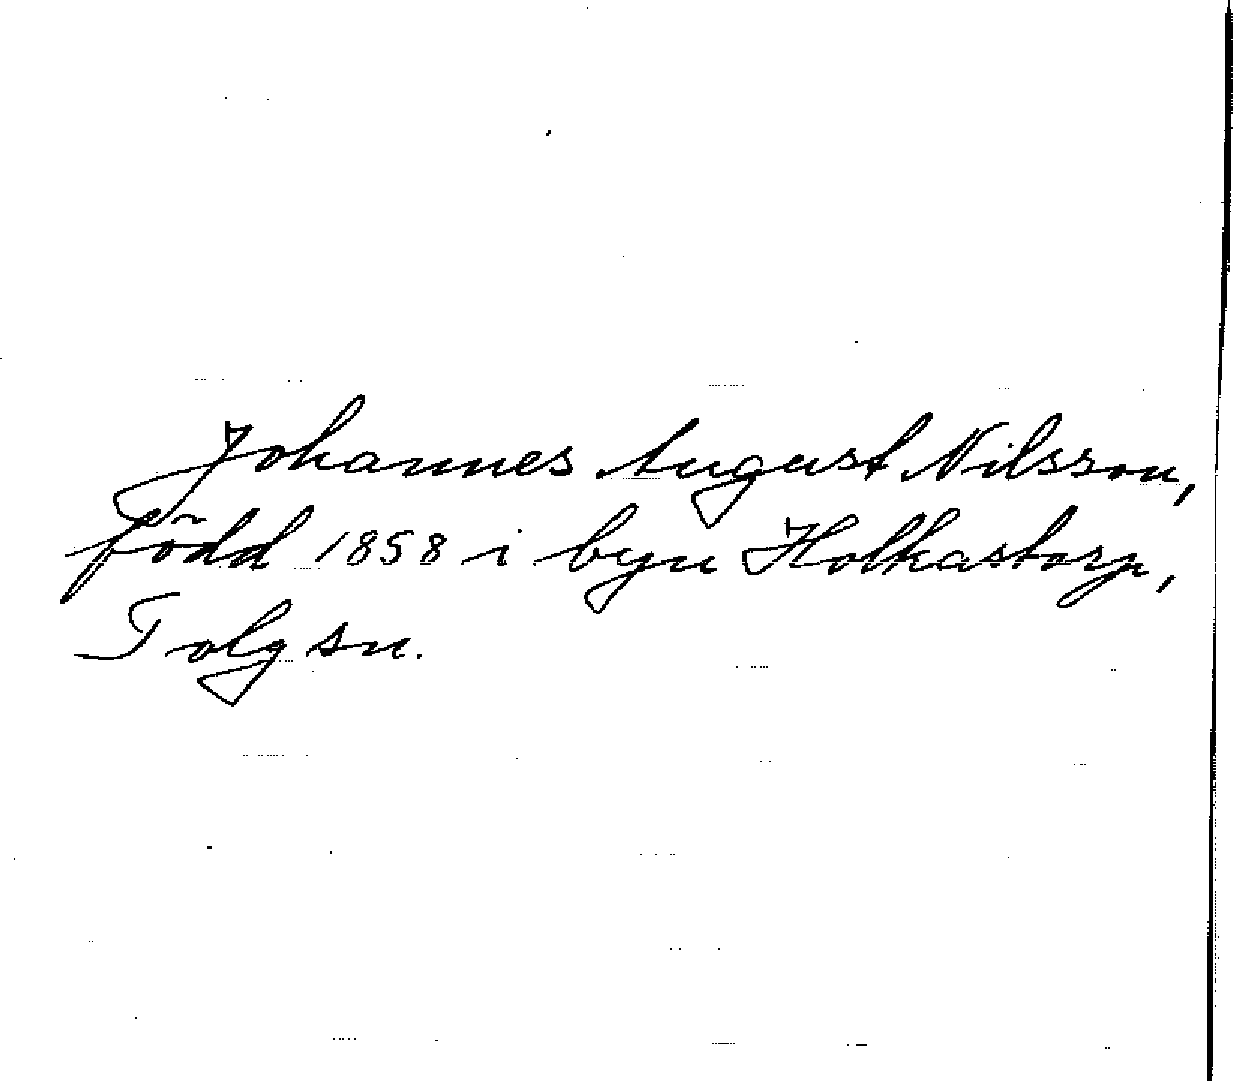 Johannes August Nilsson,
född 1858 i byn Holkastorp,
Tolg sn.